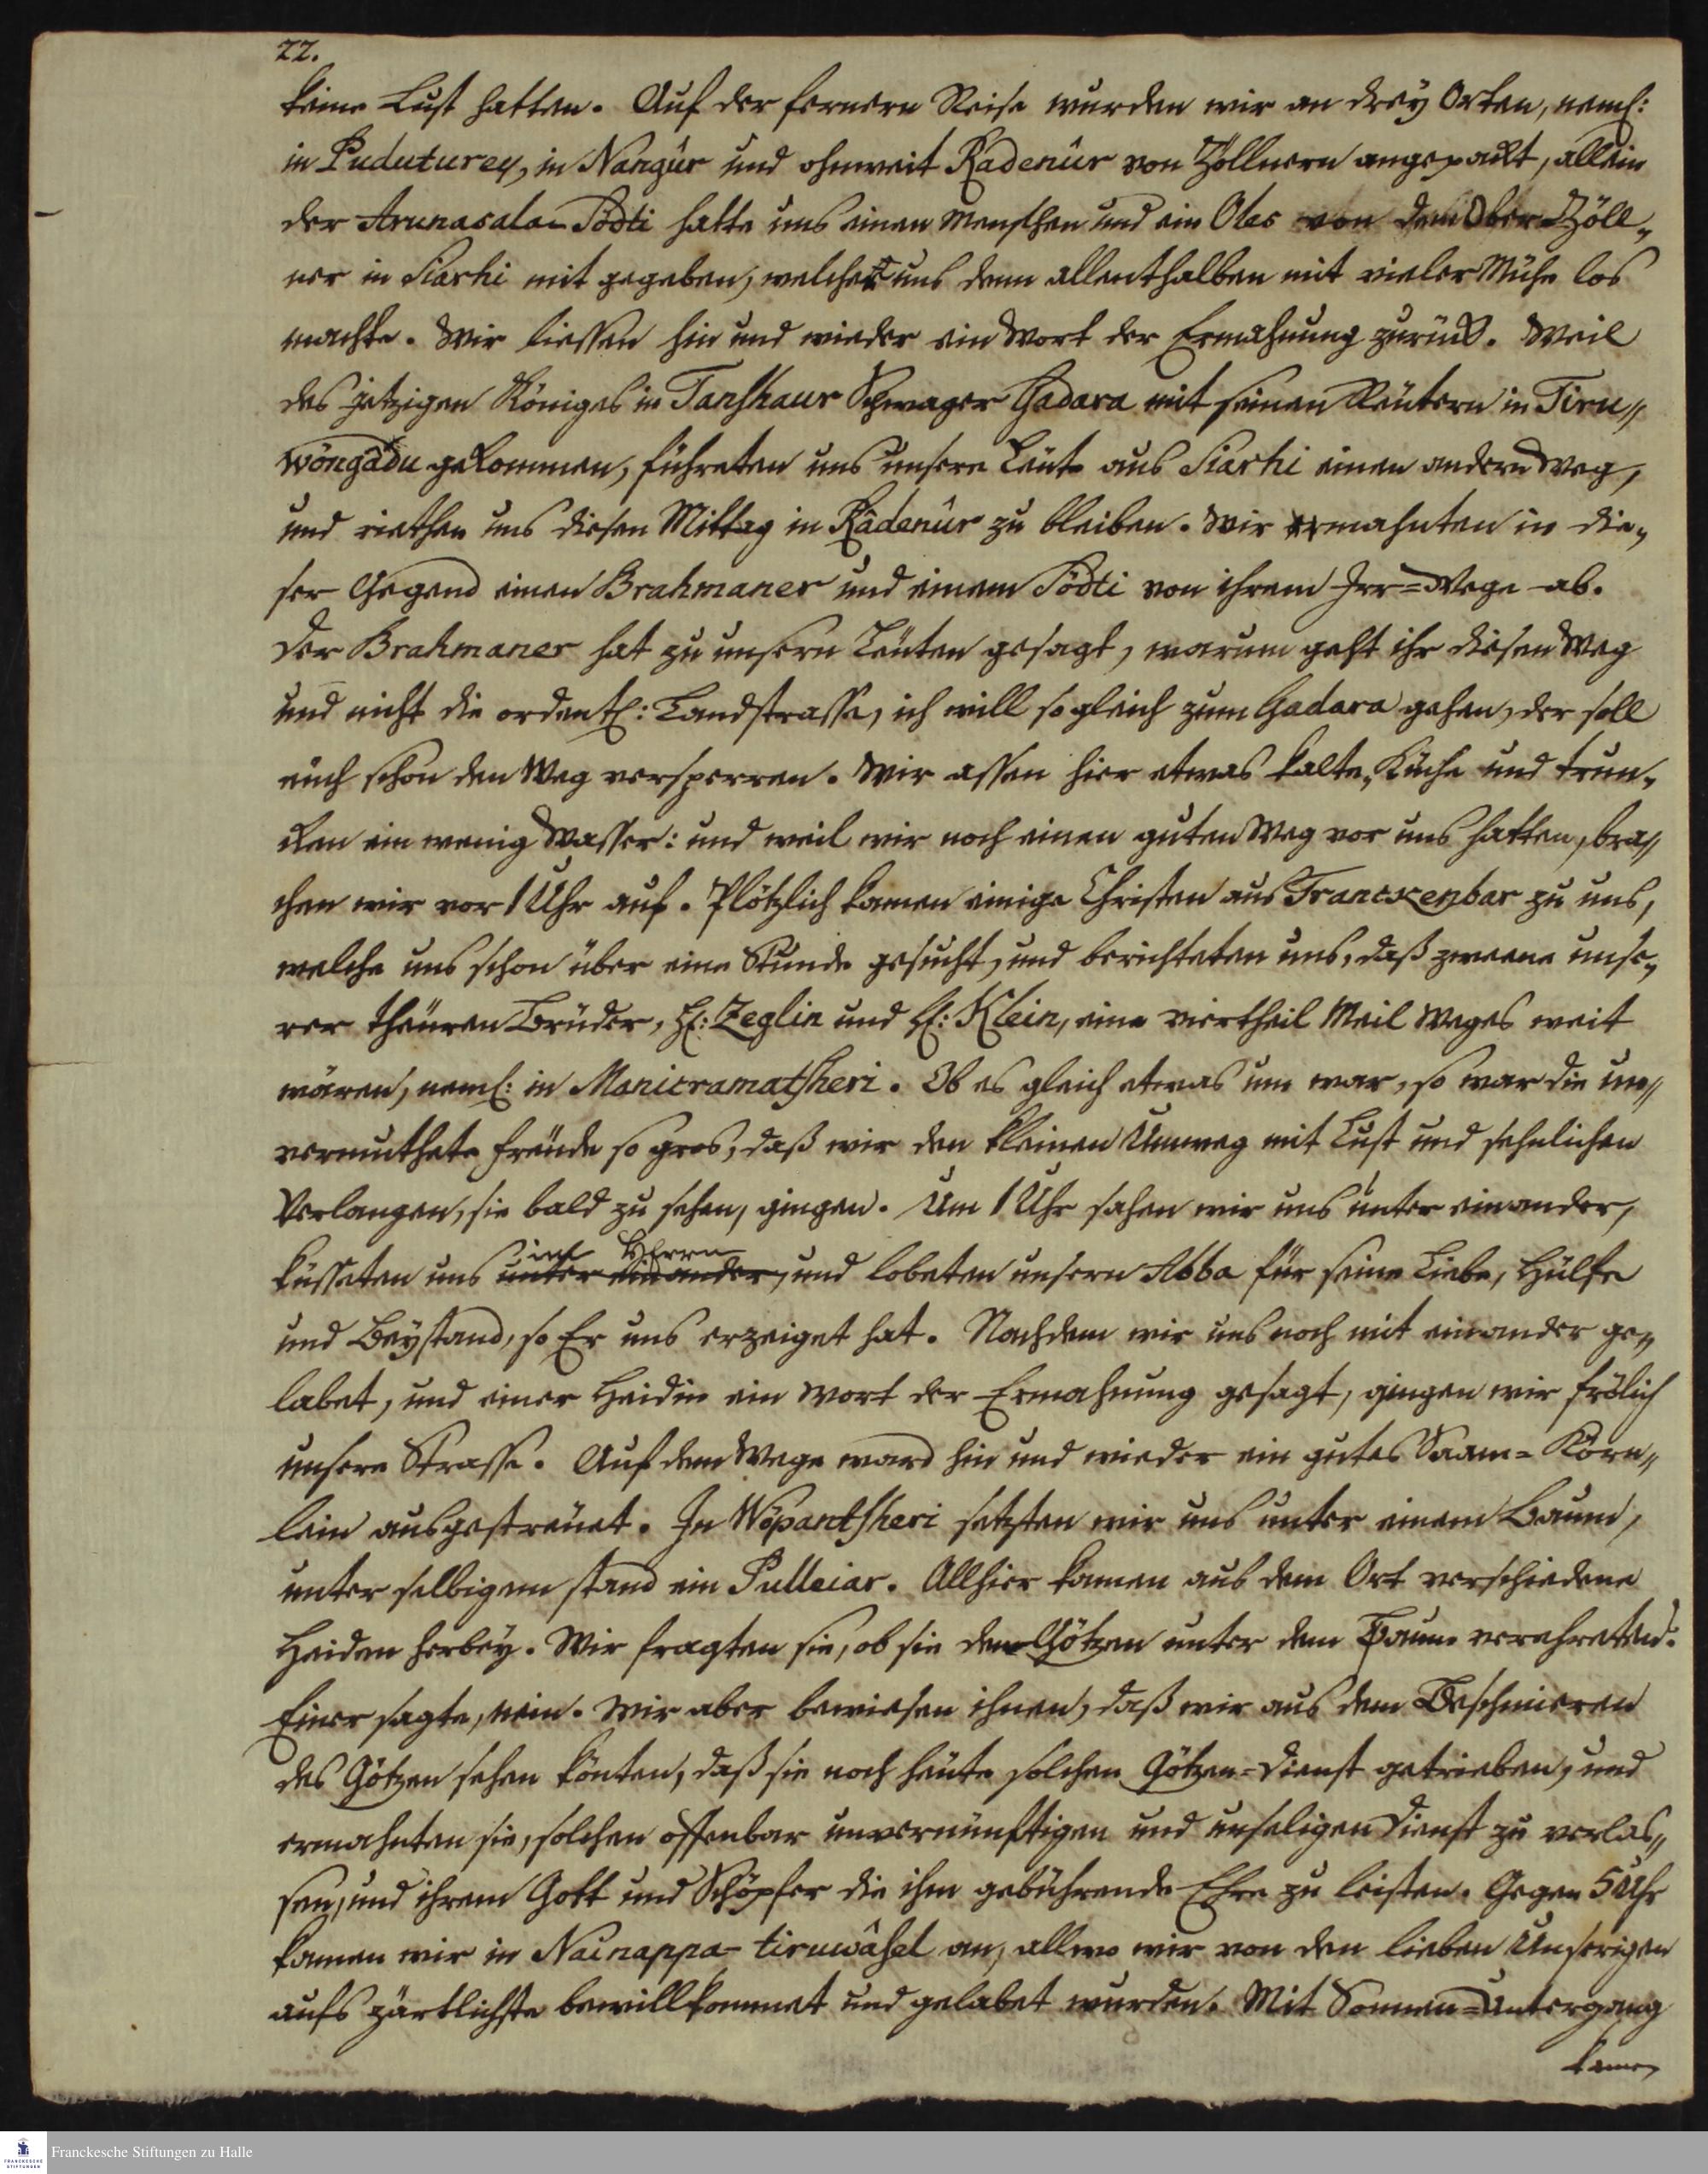 22.
keine Lust hatten. Auf der fernern Reise wurden wir an drey Orten, neml:
in Puduturey, in Nangûr und ohnweit Kadenûr von Zöllnern angepackt, allein
der Arunasala-Södti hatte uns einen Menschen und ein Oles von dem Ober-Zöll„
ner in Siarhi mit gegeben, welcher uns denn allenthalben mit vieler Mühe los
machte. Wir liessen hin und wieder ein Wort der Ermahnung zurück. Weil
des jetzigen Königes in Tanshaur Schwager Gadara mit seinen Reutern in Tiru„
wöngâdu gekommen, führeten uns unsere Leute aus Siarhi einen andern Weg,
und riethen uns diesen Mittag in Kâdenûr zu bleiben. Wir ermahnten in die„
ser Gegend einen Brahmaner und einem Södti von ihrem Irr=Wege ab.
Der Brahmaner hat zu unsern Leuten gesagt, warum geht ihr diesen Weg
und nicht die ordentl: Landstrasse, ich will sogleich zum Gadara gehen, der soll
euch schon den Weg versperren. Wir assen hier etwas kalte Küche und trun„
ken ein wenig Wasser: und weil wir noch einen guten Weg vor uns hatten, bra„
chen wir vor 1 Uhr auf. Plötzlich kamen einige Christen aus Tranckenbar zu uns,
welche uns schon über eine Stunde gesucht, und berichteten uns, daß zweene unse„
rer theuren Brüder, H: Zeglin und H: Klein, eine viertheil Meil Weges weit
wären, neml: in Manicramatsheri. Ob es gleich etwas um war, so war die un„
vermuthete Freude so gros, daß wir den kleinen Umweg mit Lust und sehnlichen
Verlangen, sie bald zu sehen, gingen. Um 1 Uhr sahen wir uns unter einander,
im HErrn
küsseten uns unter einander, und lobeten unsern Abba für seine Liebe, Hülfe
und Beystand, so Er uns erzeiget hat. Nachdem wir uns noch mit einander ge„
labet, und einer Heidin ein Wort der Ermahnung gesagt, gingen wir frölich
unsere Strasse. Auf dem Wege ward hin und wieder ein gutes Saam=Körn„
lein ausgestreuet. In Wöpantsheri setzten wir uns unter einem Baum,
unter selbigem stand ein Pulleiar. Allhier kamen aus dem Ort verschiedene
Heiden herbey. Wir fragten sie, ob sie den Götzen unter dem Baum verehreten.
Einer sagte, nein. Wir aber bewiesen ihnen, daß wir aus dem Beschmieren
des Götzen sehen könten, daß sie noch heute solchen Götzen=Dienst getrieben, und
ermahnten sie, solchen offenbar unvernünftigen und unseligen Dienst zu verlas„
sen, und ihrem Gott und Schöpfer die ihm gebührende Ehre zu leisten. Gegen 5 Uhr
kamen wir in Nainappa-tiruwâsel an, allwo wir von den lieben Unserigen
aufs zärtlichste bewillkommet und gelabet wurden. Mit Sonnen=Untergang
kamen
Franckesche Stiftungen zu Halle